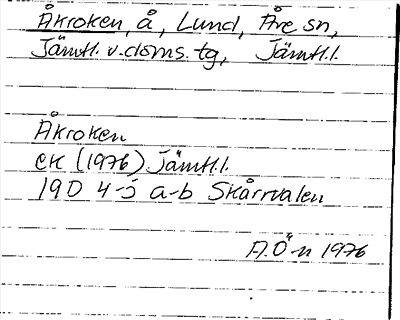 Åkroken, å, Lund, Åre sn,
Jämtl. v. doms. tg, Jämtl. l.
Åkroken
ek (1976) Jämtl. l.
19D 4-5 a-b Skårrvalen
A.Ö-n 1976